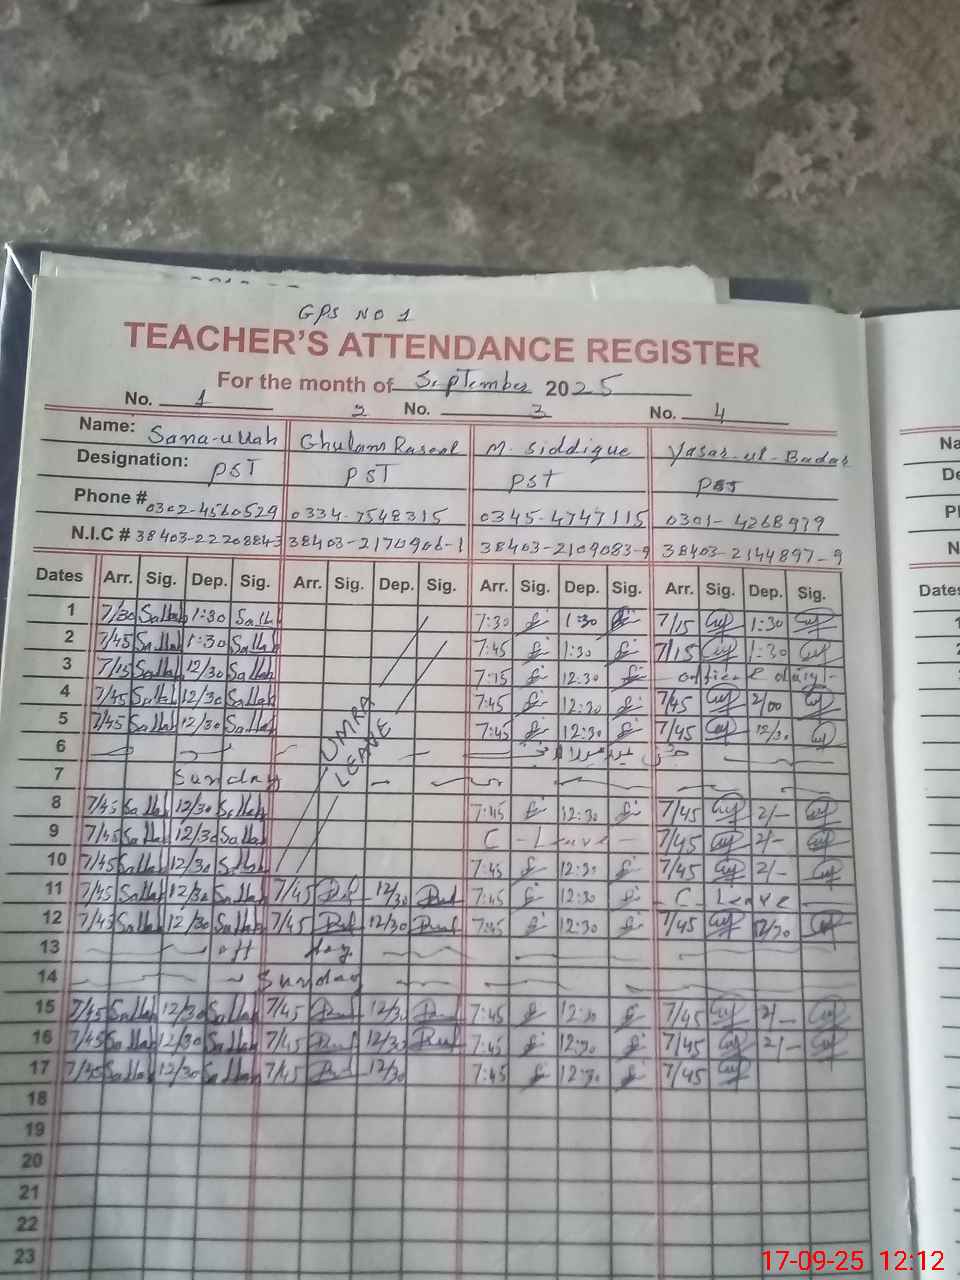 GPS NO 1
TEACHER'S ATTENDANCE REGISTER
For the month of September 2025
No. 1 2 No. 3 No. 4
Name: Sana-ullah Ghulam Rasool M. Siddique Yasar-ul-Badar
Designation: PST PST PST PST
Phone # 0302-4560529 0334-7548315 0345-4747115 0301-4268979
N.I.C # 38403-22208843 38403-2170906-1 38403-2109083-9 38403-2144897-9
Dates Arr. Sig. Dep. Sig. Arr. Sig. Dep. Sig. Arr. Sig. Dep. Sig. Arr. Sig. Dep. Sig.
1 7/30 Sallah 1:30 Sallah 7:30 1:30 7/15 1:30
2 7/45 Sallah 1:30 Sallah 7:45 1:30 7/15 1:30
3 7/15 Sallah 12/30 Sallah 7:15 12:30 office duty
4 7/45 Sallah 12/30 Sallah 7:45 12:30 7/45 2/00
5 7/45 Sallah 12/30 Sallah UMRA LEAVE 7:45 12:30 7/45 12/30
6
7 Sunday
8 7/45 Sallah 12/30 Sallah 7:45 12:30 7/45 2/-
9 7/45 Sallah 12/30 Sallah C - Leave - 7/45 2/-
10 7/45 Sallah 12/30 Sallah 7:45 12:30 7/45 2/-
11 7/45 Sallah 12/30 Sallah 7/45 12/30 7:45 12:30 - C - Leave -
12 7/45 Sallah 12/30 Sallah 7/45 12/30 7:45 12:30 7/45 12/30
13 off day
14 Sunday
15 7/45 Sallah 12/30 Sallah 7/45 12/30 7:45 12:30 7/45 2/-
16 7/45 Sallah 12/30 Sallah 7/45 12/30 7:45 12:30 7/45 2/-
17 7/45 Sallah 12/30 Sallah 7/45 12/30 7:45 12:30 7/45
18
19
20
21
22
23
Na
De
Ph
N
Dates
17-09-25 12:12